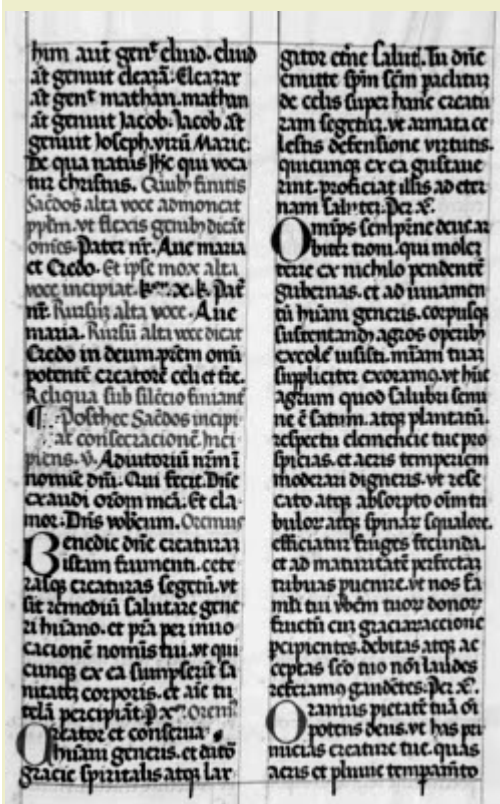 him aut genᵗ eliud. eliud
at̄ genuit eleazā. Eleazar
at̄ genᵗ mathan. mathan
at̄ genuit Jacob. Jacob at̄
genuit Joseph. virū Marie.
De qua natus Jhc̄ qui voca
tur christus. Quib; finitis
Sac̄dos alta voce admoneat
pp̄lm. vt flexis genib; dicāt
om̄es. Pater nr̄. Aue maria
et Credo. Et ipse mox alta
voce incipiat. x. k. Pat̄
nr̄. Rursū alta voce. Aue
maria. Rursū alta voce dicat
Credo in deum prēm om̄i
potentē creatorē celi et tr̄e.
Reliqua sub silēcio finiant
¶ Posthec Sac̄dos incipi
at consecracionē. Inci
piens. v̄. Adiutoriū nr̄m ī
nomīe dn̄i. Qui fecit. Dn̄e
exaudi or̄om meā. Et cla
mor. Dn̄s vobiscum. Oremus
Benedic dn̄e creaturaꝫ
istam frumenti. cete
rasqꝫ creaturas segetū. vt
sit remediū salutare gene
ri hūano. et pr̄a per inuo
cacionē nomīs tui. vt qui
cunqꝫ ex ea sumpserit sa
nitatē corporis. et aīe tu
telā percipiāt. P. xᵐ. oremꝰ
Creator et conserua
hūani generis. et datō
gracie spiritalis atqꝫ lar
gitor etn̄e salutꝭ. Tu dn̄e
emitte sp̄m sc̄m paclitū
de celis super hanc creatu
ram segetū. vt armata ce
lestis defensione virtutis.
quicunqꝫ ex ea gustaue
rint. proficiat illis ad eter
nam salutem. Per x̄.
Omīps sempit̄ne deus. ar
biter troni. qui molem
terre ex nichilo pendentē
gubernas. et ad iuuamen
tū hūani generis. corpusqꝫ
sustentand̄. agros operib;
excolē iussisti. mīam tuaꝫ
suppliciter exoramꝰ. vt hūc
agrum quod salubri semi
ne ē satum. atqꝫ plantatū.
respectu clemencie tue pro
spicias. et aeris temperiem
moderari digneris. vt rese
cato atqꝫ absorpto oīm tri
buloꝝ atqꝫ spinaꝝ squalore.
efficiatur fruges fecunda.
et ad maturitatē perfectaꝫ
tribuas puenire. vt nos fa
mli tui vbēm tuoꝝ donoꝝ
fructū cū graciaꝝ accione
pcipientes. debitas atqꝫ ac
ceptas sc̄o tuo nōi laudes
referamꝰ gaudētes. Per x̄.
Oramus pietatē tuā oī
potens deus. vt has pri
micias creature tue. quas
aeris et pluuie tempam̄to